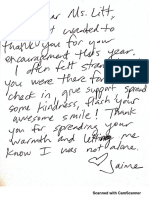 ar Ms. Litt,
st wanted to
thank you for your
encouragement this year.
I often felt
you were there for
check in, give support spread
some kindness, flash your
awesome smile! Thank
you for spending your
warmth and letting me
know I was not alone.
♡ Jaime
Scanned with CamScanner